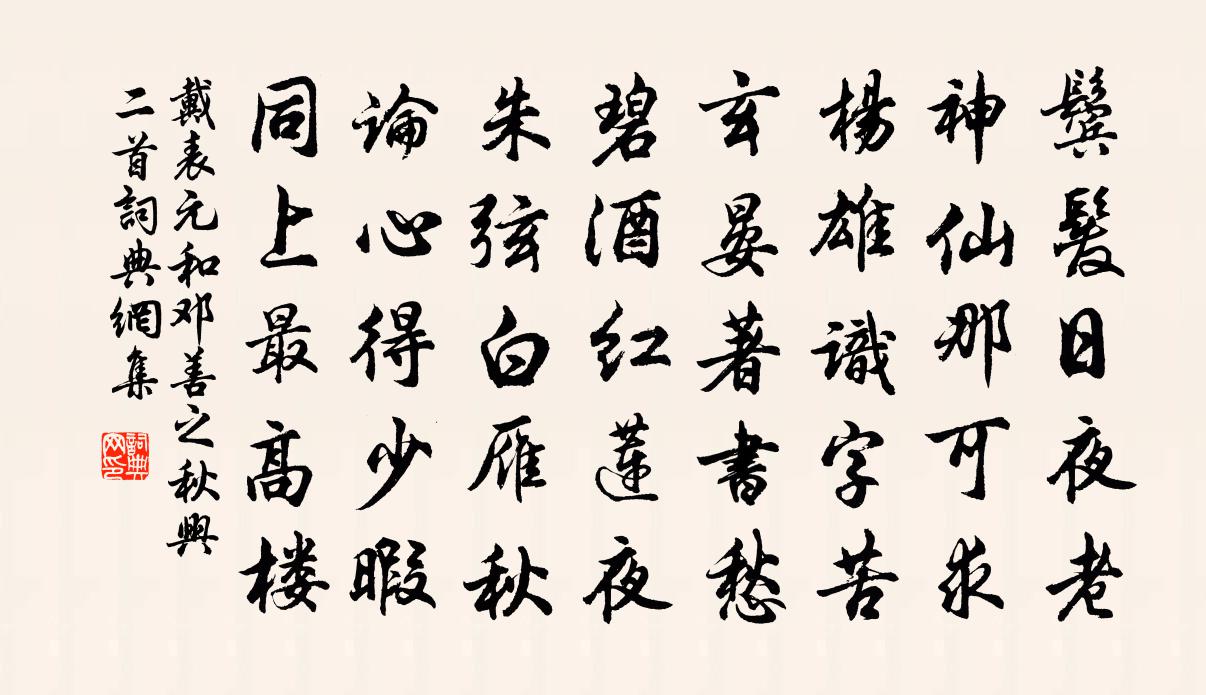 鬓髮日夜老
神仙那可求
楊雄識字苦
玄晏著書愁
碧酒红蓮夜
朱弦白雁秋
論心得少暇
同上最高楼
戴表元和邓善之秋興
二首詞典網集
詞典网印